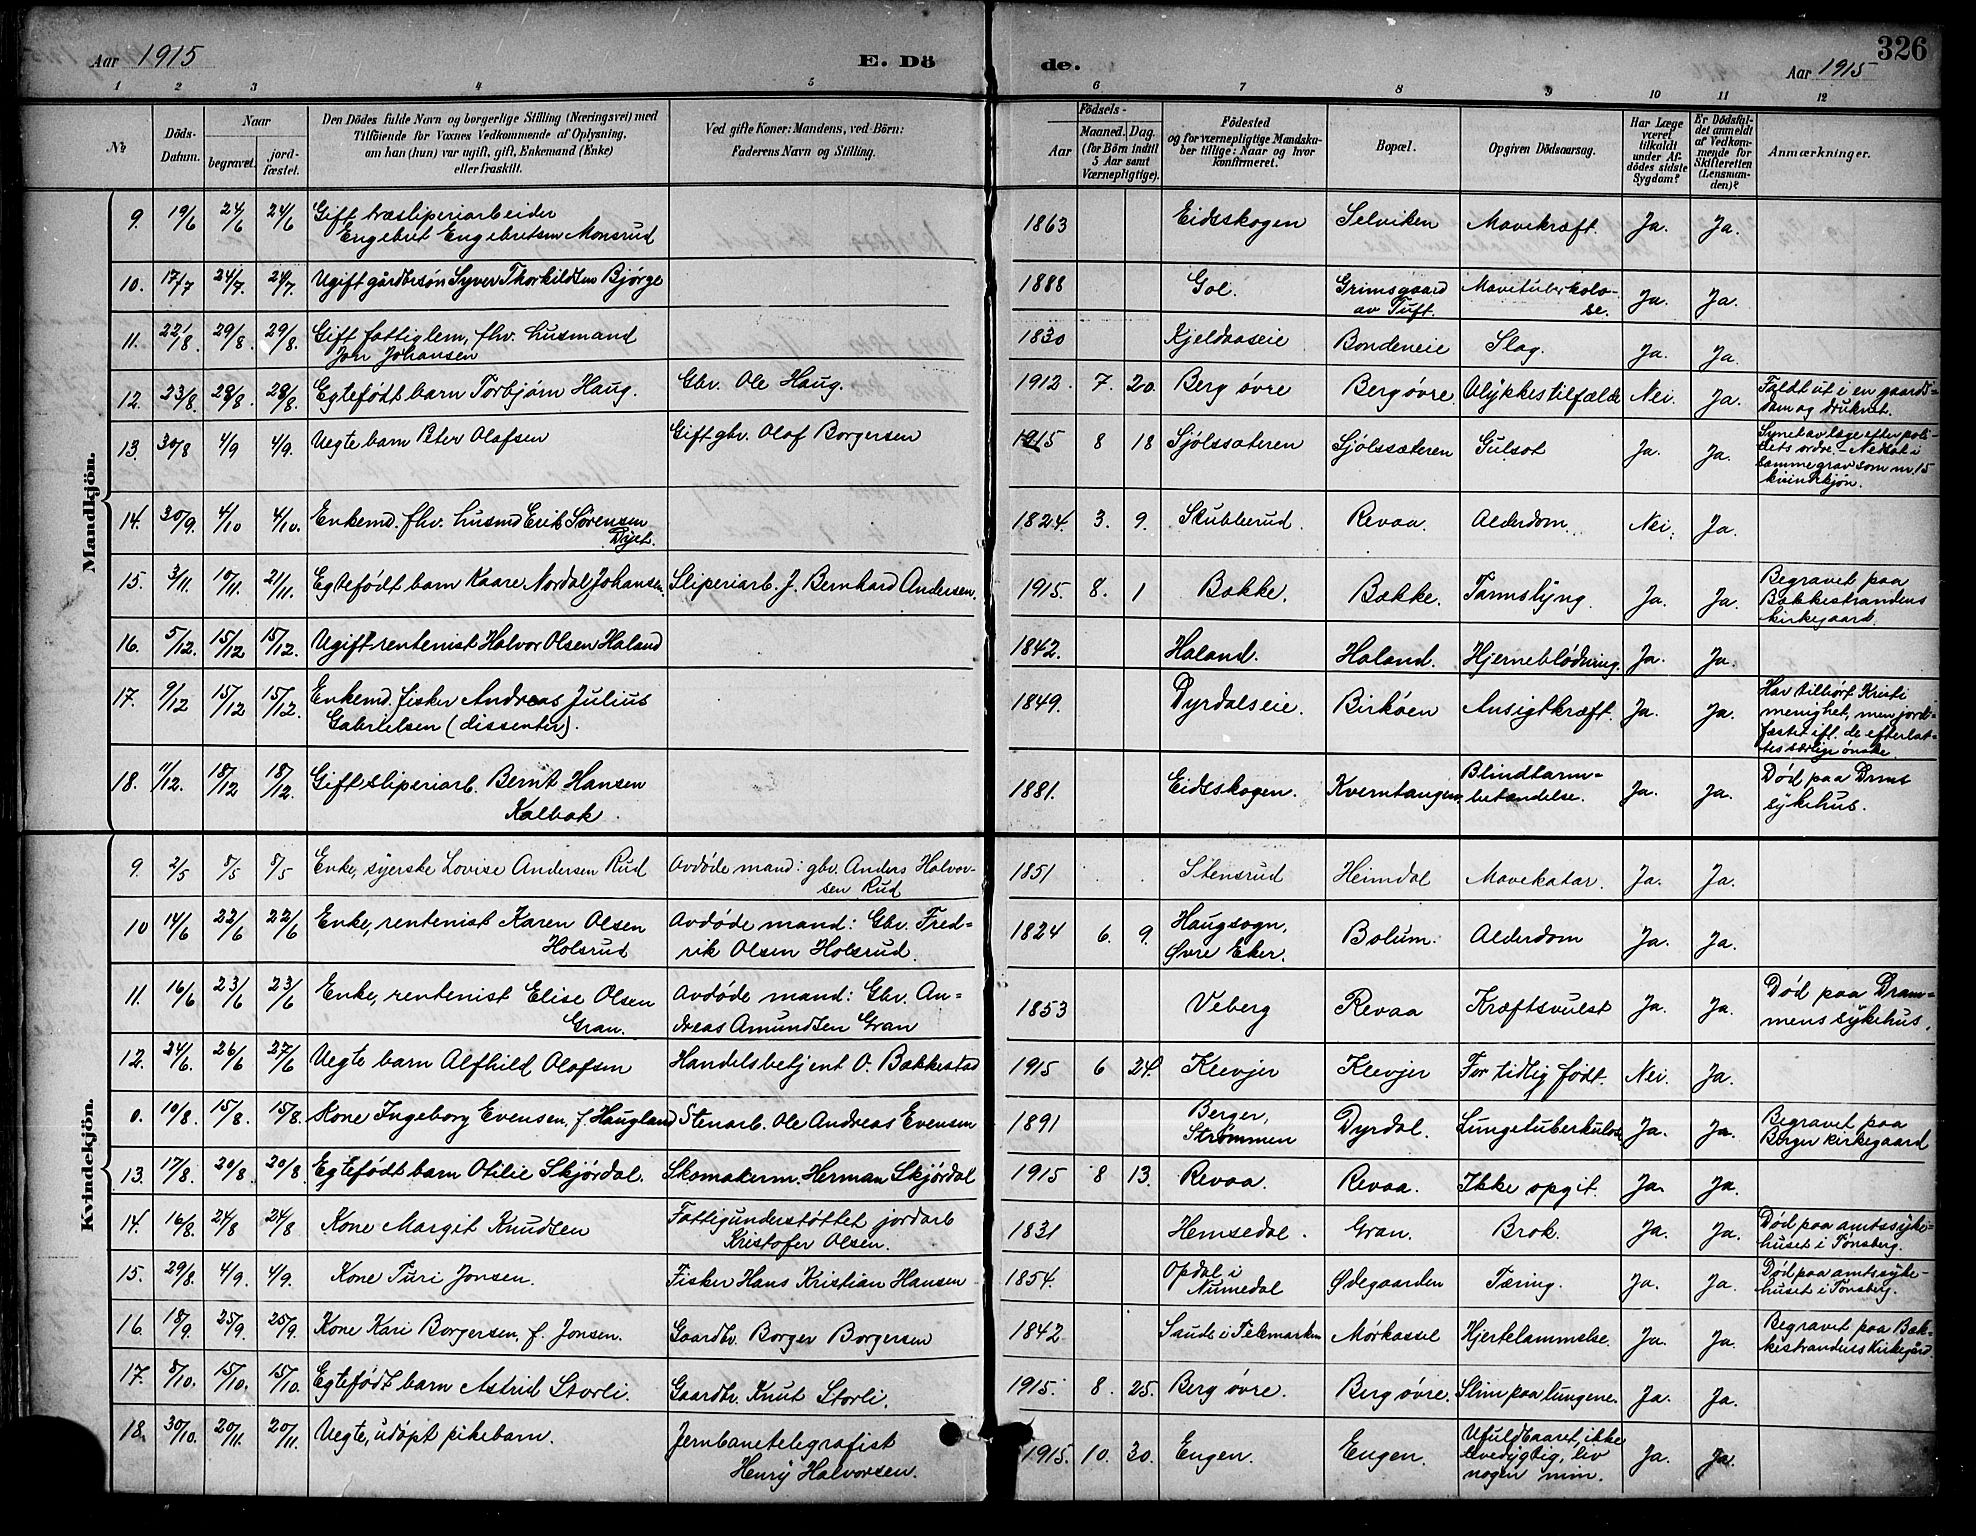 Aar 1915
E. Dö
de.
Aar 1915
326
1 2 3 4 5 6 7 8 9 10 11 12
No
Döds-
Datum.
Naar
begravet.
jord-
fæstet.
Den Dödes fulde Navn og borgerlige Stilling (Næringsvei) med
Tilföiende for Voxnes Vedkommende af Oplysning,
om han (hun) var ugift, gift, Enkemand (Enke)
eller fraskilt.
Ved gifte Koner: Mandens, ved Börn:
Faderens Navn og Stilling.
Födsels-
Aar
Maaned. Dag.
(for Börn indtil
5 Aar samt
Værnepligtige).
Födested
og for værnepligtige Mandska-
ber tillige: Naar og hvor
konfirmeret.
Bopæl.
Opgiven Dödsaarsag.
Har Læge
været
tilkaldt
under Af-
dödes sidste
Sygdom?
Er Dödsfal-
det anmeldt
af Vedkom-
mende for
Skifteretten
(Lensman-
den)?
Anmærkninger.
Mandkjön.
9. 19/6 24/6 24/6 Gift træsliperiarbeider
Engebret Engebretsen Monsrud
1863 Eidsskogen Selviken Mavekræft. Ja. Ja.
10. 17/7 24/7. 24/7. Ugift gårdbrsøn Syver Thorkildsen Bjørge
1888 Gol. Grimsgaard
av Tuft. Mavetuberkolo-
se. Ja. Ja.
11. 22/8 29/8. 29/8. Gift fattiglem, fhv. husmand
Jon Johansen
1830 Kjeldaaseie Bondeneie Slag. Ja. Ja.
12. 23/8. 28/8. 28/8. Egtefødt barn Torbjørn Haug. Gbr. Ole Haug.
1912. 7. 20. Berg øvre Berg øvre. Ulykkestilfælde Nei. Ja. Faldt ut i en gaards-
dam og druknet.
13. 30/8 4/9 4/9. Uegte barn Peter Olafsen Gift gbr. Olaf Borgersen
1915 8 18 Sjølssæteren Sjølssæteren Gulsot Ja. Ja. Synet av læge efter poli-
tiets ordre. - Nedsat i
samme grav som nr. 15
kvindekjøn.
14. 30/9. 4/10 4/10. Enkemd. fhv. husmd Erik Sørensen
1824. 3. 9. Skubberud. Revaa. Alderdom. Nei. Ja.
15. 3/11. 10/11. 21/11. Egtefødt barn Kaare Nordal Johansen. Sliperiarb. J. Bernhard Andersen.
1915. 8. 1 Bakke. Bakke. Tarmslyng. Ja. Ja. Begravet paa
Bakkestrandens
kirkegaard.
16. 5/12. 15/12 15/12. Ugift rentenist Halvor Olsen Haland
1842. Haland. Haland. Hjerneblødning. Ja. Ja.
17. 9/12 15/12 15/12. Enkemd. fisker Andreas Julius
Gabrielsen (dissenter).
1849. Dyrdalseie. Birköen Ansigtkræft. Ja. Ja. Har tilhørt Kristi
menighet, men jord-
fæstet ifl. de efterlat-
tes særlige ønske.
18. 11/12. 18/12 18/12. Gift sliperiarb. Bernt Hansen
Kalbak.
1881. Eidsskogen. Kverntangen. Blindtarm-
betændelse. Ja. Ja. Død paa Drms
sykehus.
Kvindekjön.
9. 2/5 8/5 8/5 Enke, syerske Lovise Andersen Rud Avdøde mand: gbr. Anders Halvor-
sen Rud
1851 Stensrud Heimdal Mavekatar. Ja. Ja.
10 14/6 22/6 22/6 Enke, rentenist Karen Olsen
Holsrud Avdøde mand: Gbr. Fred-
rik Olsen Holsrud.
1824 6. 9. Haugsogn,
Øvre Eker. Bolum. Alderdom Ja. Ja.
11. 16/6 23/6 23/6 Enke, rentenist Elise Olsen
Gran. Avdøde mand: Gbr. An-
dreas Amundsen Gran
1853 Veberg Revaa Kræftsvulst Ja. Ja. Død paa Dram-
mens sykehus.
12. 24/6. 26/6 27/6 Uegte barn Alfhild Olafsen Handelsbetjent O. Bakkestad
1915 6 24. Klevjer Klevjer For tidlig født. Nei. Ja.
0. 10/8. 15/8. 15/8. Kone Ingeborg Evensen, f. Haugland Stenarb. Ole Andreas Evensen
1891 Berger,
Strømmen Dyrdal. Lungetuberkulose Ja. Ja. Begravet paa
Berger kirkegaard
13. 17/8. 20/8 20/8 Egtefødt barn Otilie Skjørdal. Skomakerm. Herman Skjørdal
1915 8 13. Revaa. Revaa. Ikke opgit. Ja. Ja.
14. 16/8. 24/8 24/8 Kone Margit Knudsen Fattigunderstøttet jordarb
Kristofer Olsen.
1831 Hemsedal. Gran. Brok. Ja. Ja. Død paa amtssyke-
huset i Tønsberg.
15. 29/8. 4/9. 4/9. Kone Turi Jonsen. Fisker Hans Kristian Hansen
1854. Opdal i
Numedal Ødegaarden Tæring. Ja. Ja. Død paa amtssyke-
huset i Tønsberg.
16. 18/9. 25/9. 25/9. Kone Kari Borgersen, f. Jonsen. Gaardbr. Borger Borgersen
1842. Saude i Telemarken Mørkassel Hjertelammelse. Ja. Ja. Begravet paa Bak-
kestrandens Kirkegård.
17. 8/10. 15/10. 15/10. Egtefødt barn Astrid Storli. Gaardbr. Knut Storli.
1915. 8. 25. Berg øvre. Berg øvre. Slim paa lungene. Ja. Ja.
18. 30/10. 20/11. 20/11. Uegte, udøpt pikebarn. Jernbanetelegrafist
Henry Halvorsen.
1915. 10. 30. Engen. Engen. Ufuldbaaret, ikke
levedygtig, liv
nogen min. Ja. Ja.